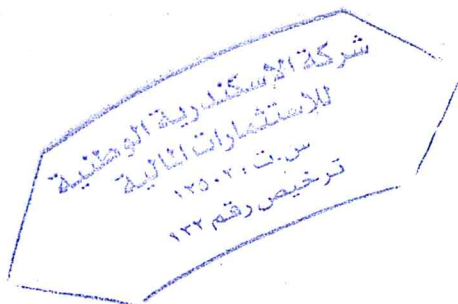 شركة الإسكندرية الوطنية
للإستثمارات المالية
س.ت : ١٢٥٠٢٠
ترخيص رقم ١٣٢